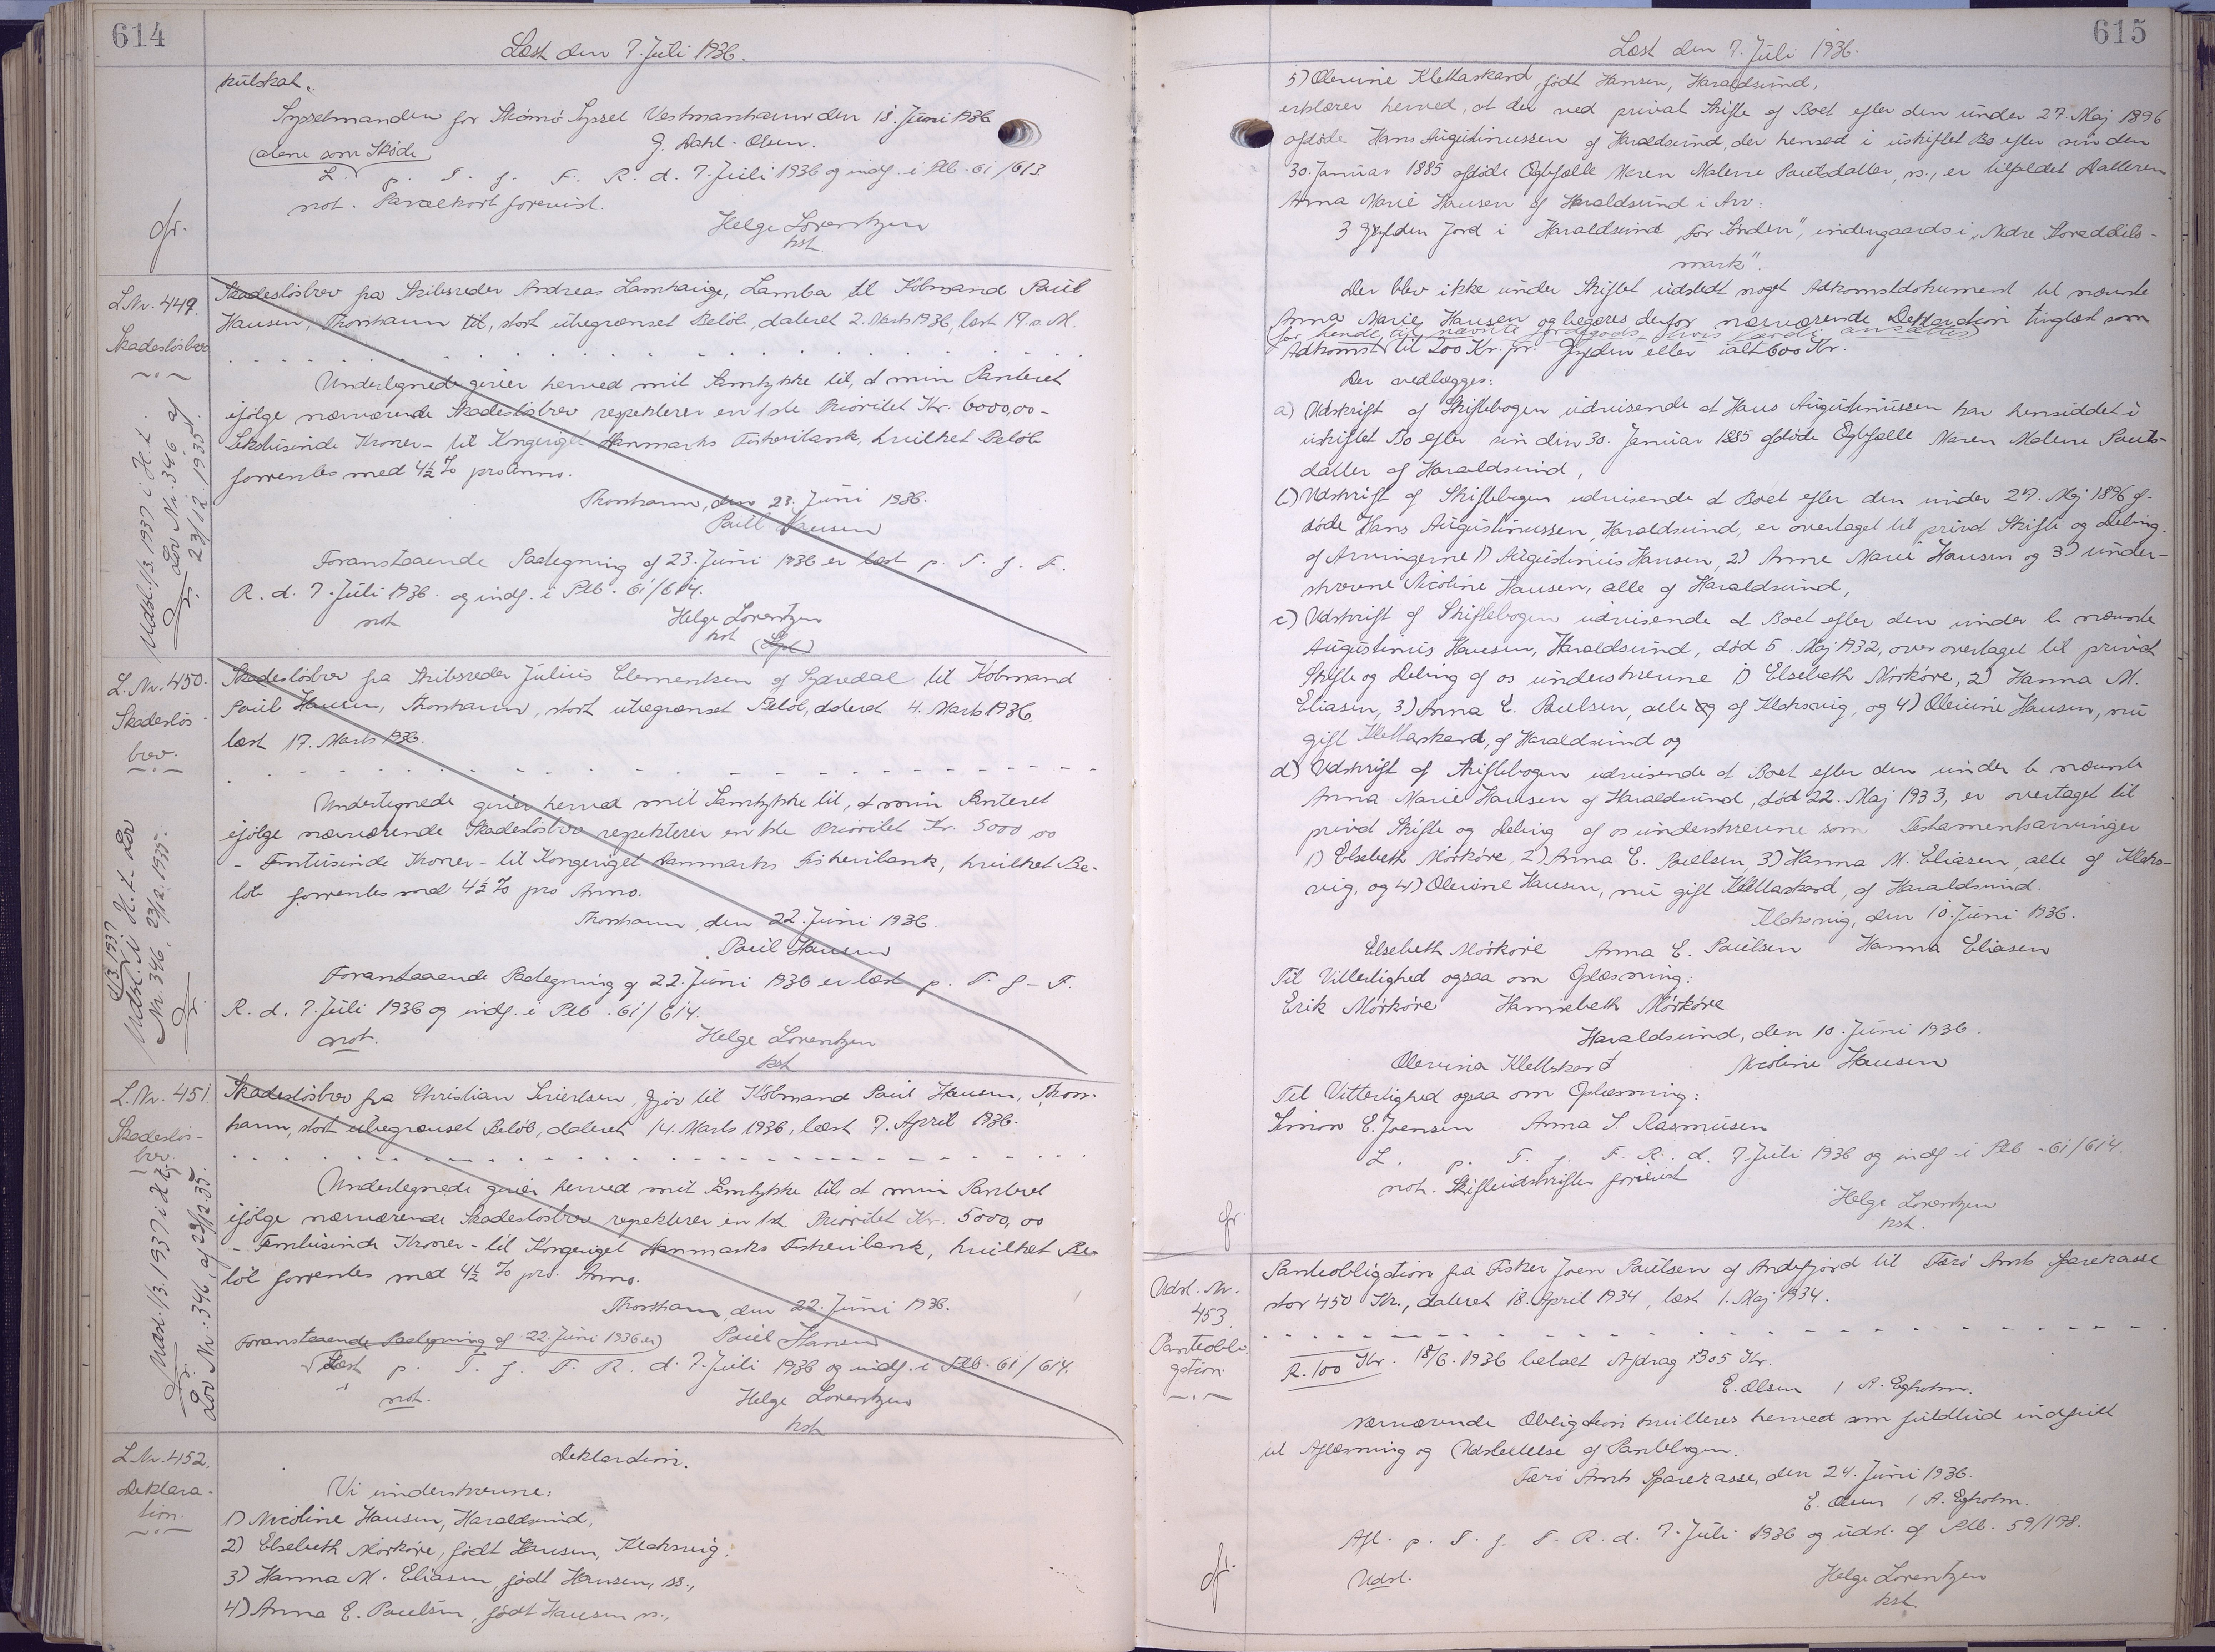 614
Læst den 7. Juli 1936.
kutskat.
Sysselmanden for Strömö Syssel Vestmanhavn den 18. Juni 1936
J. Dahl-Olsen.
(alene som Skøde)
L. p. T. f. F. R. d. 7 Juli 1936 og indf. i Ptb. 61/613
not. Parcelkort forevist.
Helge Lorentzen
kst.
L.Nr. 449.
Skadesløsbrev
Udsl. 1/3. 1937 i H. t.
Lov Nr. 346 af
23/12 1935.
Skadesløsbrev fra Skibsreder Andreas Lamhauge, Lamba til Købmand Paul
Hansen, Thorshavn til, stort ubegrænset Beløb, dateret 2. Marts 1936, læst 17. s. M.
Undertegnede giver herved mit Samtykke til, at min Panteret
ifølge nærværende Skadesløsbrev respekterer en 1ste Prioritet Kr. 6000,00 -
Sekstusinde Kroner - til Kongeriget Danmarks Fiskeribank, hvilket Beløb
forrentes med 4½ % pro Anno.
Thorshavn, den 23. Juni 1936.
Paul Hansen
Foranstaaende Paategning af 23. Juni 1936 er læst p. T. f. F.
R. d. 7. Juli 1936. og indf. i Ptb. 61/614.
not
Helge Lorentzen
kst
L. Nr. 450.
Skadesløs-
brev.
1/3 1937
Udsl. i H. t. Lov
Nr. 346, 23/12. 1935.
Skadesløsbrev fra Skibsreder Julius Clementsen af Sydredal til Købmand
Paul Hansen, Thorshavn, stort ubegrænset Beløb, dateret 4. Marts 1936,
læst 17. Marts 1936.
Undertegnede giver herved mit Samtykke til, at min Panteret
ifølge nærværende Skadesløsbrev respekterer en 1ste Prioritet Kr. 5000,00
- Femtusinde Kroner - til Kongeriget Danmarks Fiskeribank, hvilket Be-
løb forrentes med 4½ % pro Anno.
Thorshavn, den 22. Juni 1936.
Paul Hansen
Foranstaaende Paategning af 22. Juni 1936 er læst p. T. f. F.
R. d. 7. Juli 1936 og indf. i Ptb. 61/614.
not.
Helge Lorentzen
kst
L. Nr. 451.
Skadesløs-
brev.
Udsl. 1/3. 1937 i H. t.
Lov Nr: 346, af 23/12.35.
Skadesløsbrev fra Christian Sivertsen, Gjov til Købmand Paul Hansen, Thors-
havn, stort ubegrænset Beløb, dateret 14. Marts 1936, læst 7. April 1936.
Undertegnede giver herved mit Samtykke til, at min Panteret
ifølge nærværende Skadesløsbrev respekterer en 1ste Prioritet Kr. 5000,00
- Femtusinde Kroner - til Kongeriget Danmarks Fiskeribank, hvilket Be-
løb forrentes med 4½ % pro. Anno.
Thorshavn, den 22. Juni 1936.
Foranstaaende Paategning af 22. Juni 1936 er) Paul Hansen
Læst p. T. f. F. R. d. 7. Juli 1936 og indf. i Ptb. 61/614.
not.
Helge Lorentzen
kst
L.Nr. 452.
Deklara-
tion.
Deklaration.
Vi underskrevne:
1) Nicoline Hansen, Haraldsund,
2) Elsebeth Mørkøre, født Hansen, Klaksvig.
3) Hanna M. Eliasen, født Hansen, ss.,
4) Anna E. Paulsen, født Hansen ss.,
615
Læst den 7. Juli 1936.
5) Olevine Klettaskard, født Hansen, Haraldsund,
erklærer herved, at der ved privat Skifte af Boet efter den under 27. Maj 1896
afdøde Hans Augustinussen af Haraldsund, der hensad i uskiftet Bo efter sin den
30. Januar 1885 afdøde Ægtefælle Maren Malene Poulsdatter, ss., er tilfaldet Datteren
Anna Marie Hansen af Haraldsund i Arv:
3 Gylden Jord i Haraldsund "for Sønden", indengaards i "Nedre
mark".
Der blev ikke under Skiftet udstedt noget Adkomstdokument til nævnte
Anna Marie Hansen og begæres derfor nærværende Deklaration tinglæst som
for hende paa nævnte Jordgods, hvis Værdi ansættes
Adkomst til 200 Kr. pr. Gylden eller ialt 600 Kr.
Der vedlægges:
a) Udskrift af Skiftebogen udvisende at Hans Augustinussen har hensiddet i
uskiftet Bo efter sin den 30. Januar 1885 afdøde Ægtefælle Maren Malene Pouls-
datter af Haraldsund,
b) Udskrift af Skiftebogen udvisende at Boet efter den under 27. Maj 1896 af-
døde Hans Augustinussen, Haraldsund, er overtaget til privat Skifte og Deling
af Arvingerne 1) Augustinus Hansen, 2) Anne Marie Hansen og 3) under-
skrevne Nicoline Hansen, alle af Haraldsund,
c) Udskrift af Skiftebogen udvisende at Boet efter den under b nævnte
Augustinus Hansen, Haraldsund, død 5. Maj 1932, over overtaget til privat
Skifte og Deling af os underskrevne 1) Elsebeth Mørkøre, 2) Hanna M.
Eliasen, 3) Anna E. Paulsen, alle og af Klaksvig, og 4) Olevine Hansen, nu
gift Klettaskard, af Haraldsund og
d) Udskrift af Skiftebogen udvisende at Boet efter den under b nævnte
Anna Marie Hansen af Haraldsund, død 22. Maj 1933, er overtaget til
privat Skifte og Deling af os underskrevne som Testamentsarvinger
1) Elsebeth Mørkøre, 2) Anna E. Paulsen, 3) Hanna M. Eliasen, alle af Klaks-
vig, og 4) Olevine Hansen, nu gift Klettaskard, af Haraldsund.
Klaksvig, den 10. Juni 1936.
Elsebeth Mørkøre Anna E. Paulsen Hanna Eliasen
Til Vitterlighed ogsaa om Oplæsning:
Erik Mørkøre Hannebeth Mørkøre
Haraldsund, den 10. Juni 1936.
Olevina Klettskard Nicoline Hansen
Til Vitterlighed ogsaa om Oplæsning:
Simon E. Joensen Anna S. Rasmussen
L. p. T. f. F. R. d. 7 Juli 1936 og indf. i Ptb. 61/614.
not. Skifteudskrifter forevist
Helge Lorentzen
kst.
Udsl. Nr.
453
Panteobli-
gation.
Panteobligation fra Fisker Joen Paulsen af Andefjord til Færø Amts Sparekasse
stor 450 Kr., dateret 18. April 1934, læst 1. Maj 1934.
R. 100 Kr. 18/6. 1936 betalt Afdrag 305 Kr.
E. Olsen / A. Egholm.
Nærværende Obligation kvitteres herved som fuldtud indfriet
til Aflæsning og Udslettelse af Pantebogen.
Færø Amts Sparekasse, den 24. Juni 1936.
E. Olsen / A. Egholm.
Afl. p. T. f. F. R. d. 7. Juli 1936 og udsl. af Ptb. 59/178.
Udsl.
Helge Lorentzen
kst.